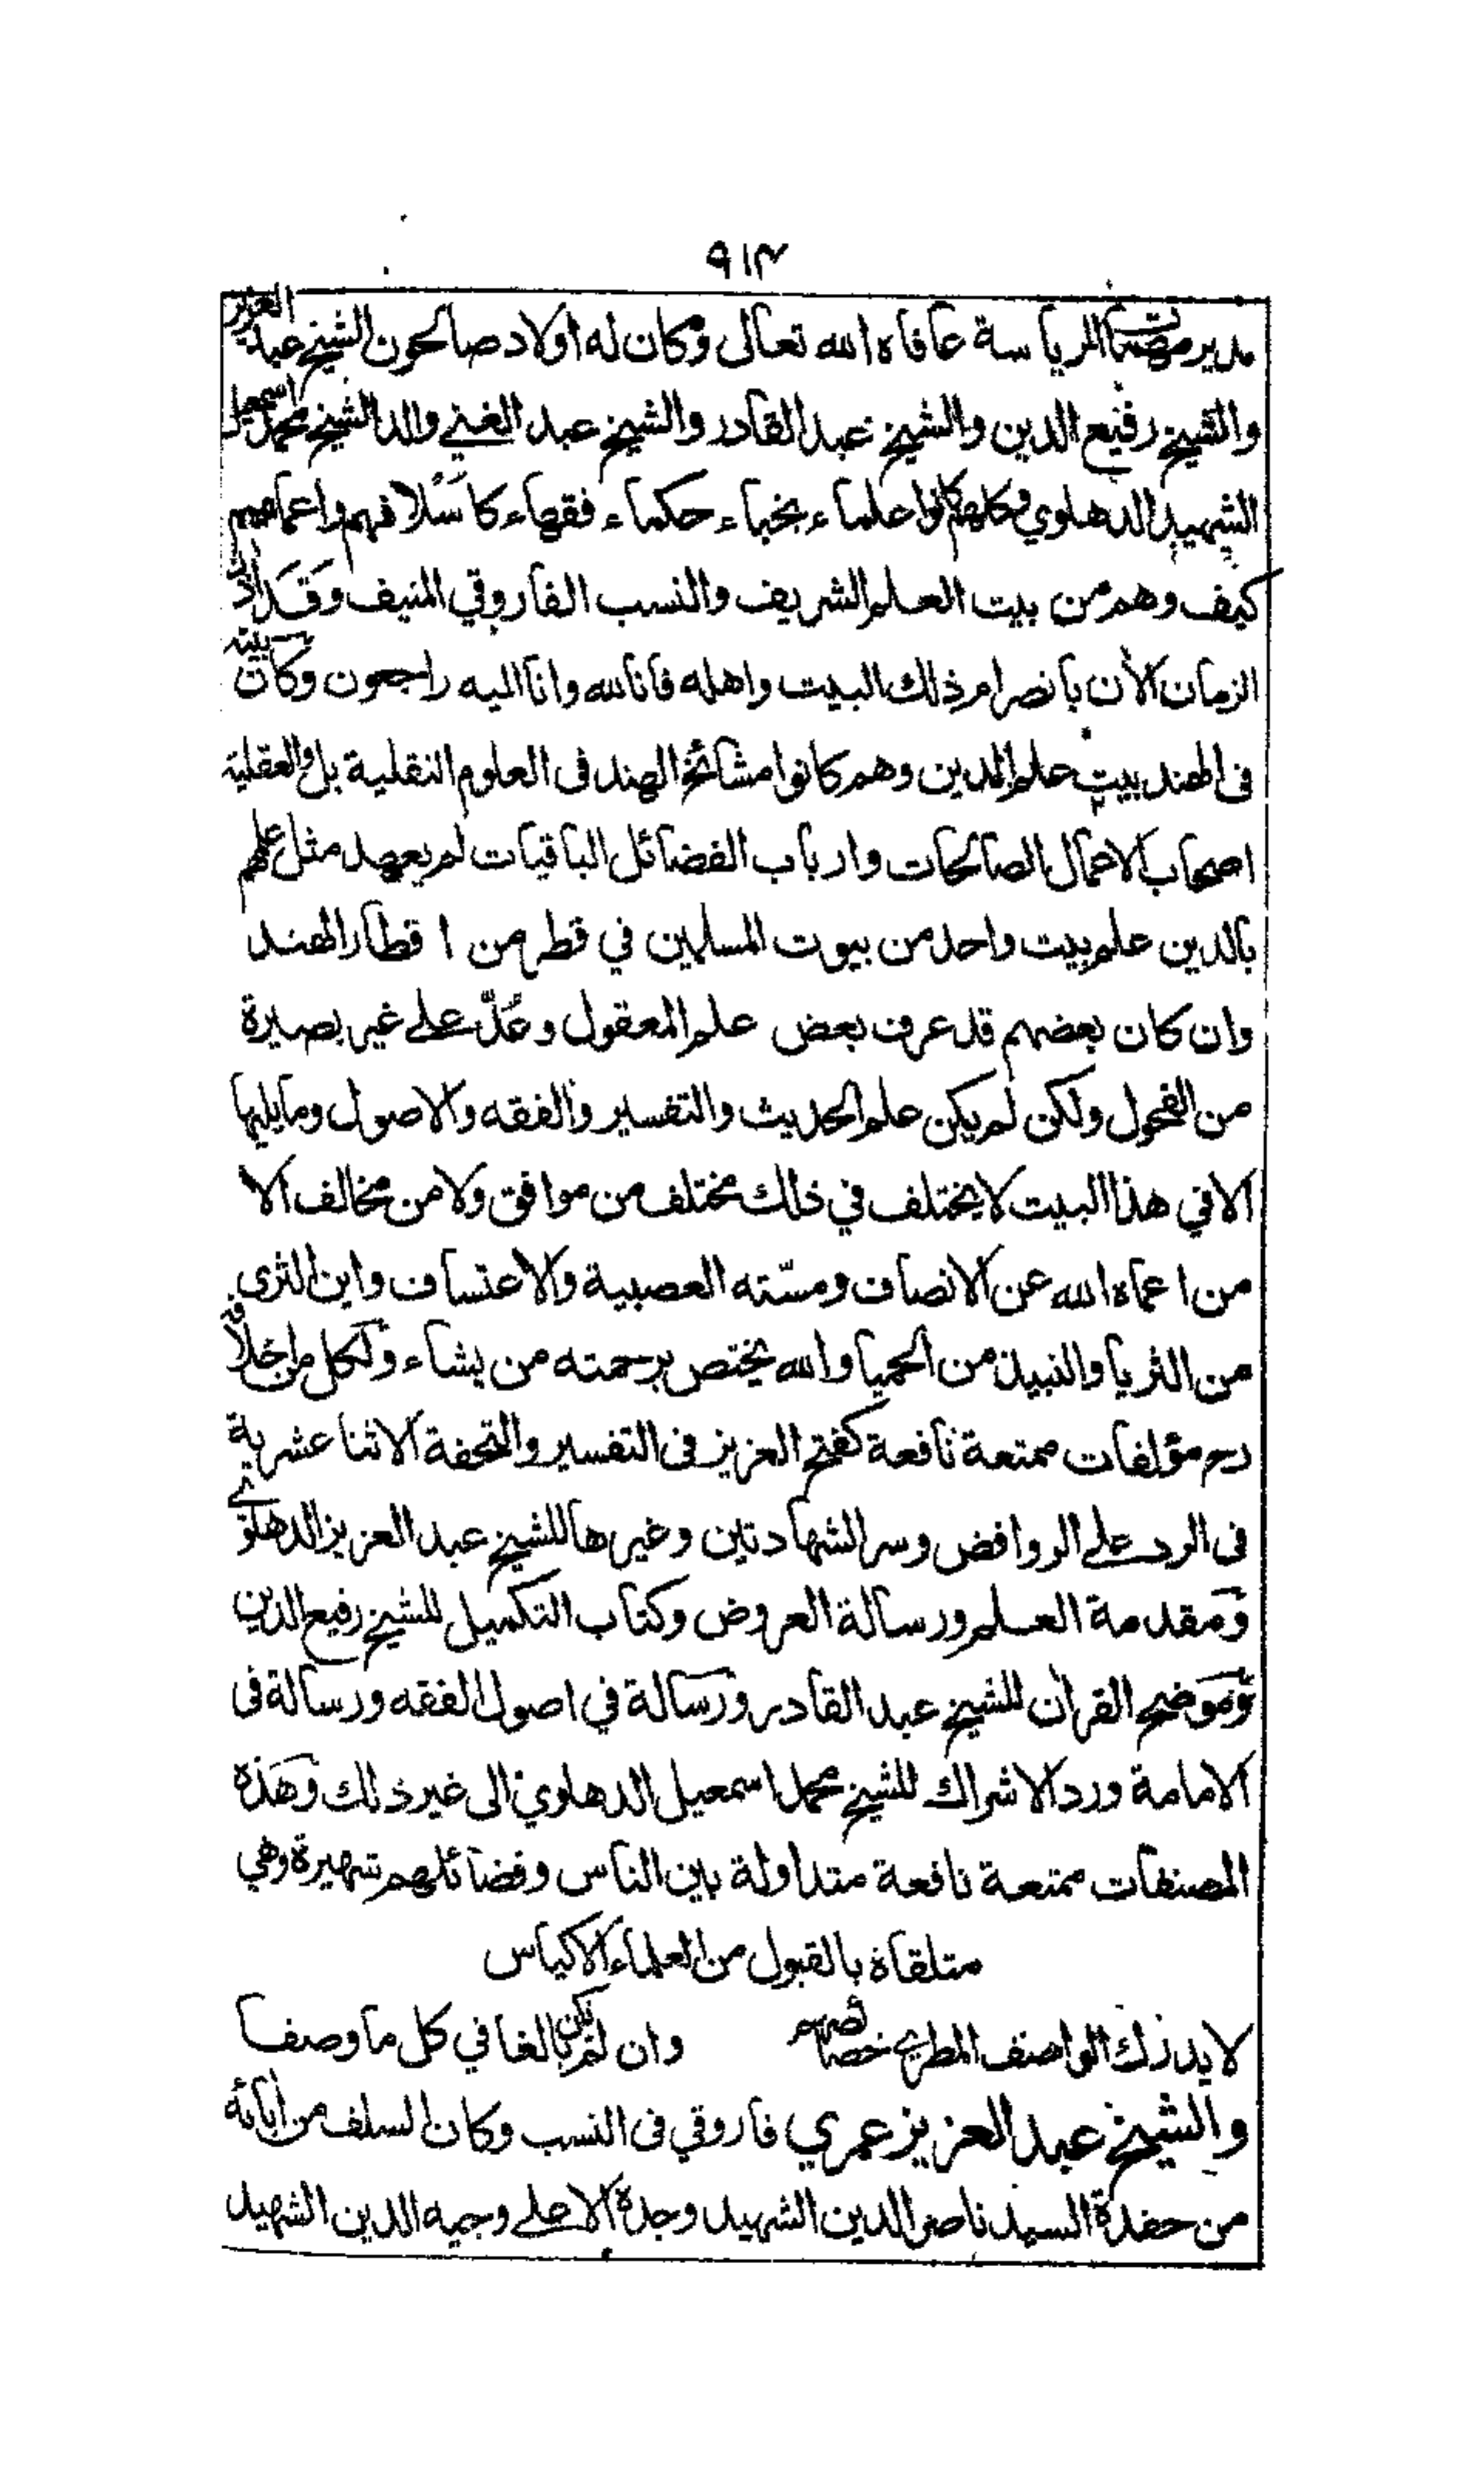 ٩١٣
مدير مهمات الرياسة عافاه الله تعالى وكان له اولاد صالحون الشيخ عبد العزيز
والشيخ رفيع الدين والشيخ عبد القادر والشيخ عبد الغني والد الشيخ محمد اسمعيل
الشهيد الدهلوي وكلهم كانوا علماء نجباء حكماء فقهاء كاسلافهم واعمامهم
كيف وهم من بيت العلم الشريف والنسب الفاروقي المنيف وقد اذن
الزمان الأن بانصرام ذلك البيت واهله فانا لله وانا اليه راجعون وكان بيته
فى الهند بيت علم الدين وهم كانوا مشائخ الهند فى العلوم النقلية بل والعقلية
اصحاب الاعمال الصالحات وارباب الفضائل الباقيات لم يعهد مثل علمهم
بالدين علم بيت واحد من بيوت المسلمين في قطر من اقطار الهند
وان كان بعضهم قد عرف بعض علم المعقول وعُدَّ على غير بصيرة
من الفحول ولكن لم يكن علم الحديث والتفسير والفقه والاصول وما يليها
الا في هذا البيت لا يختلف في ذلك مختلف من موافق ولا من مخالف الا
من اعماه الله عن الانصاف ومسّته العصبية والاعتساف واين الثرى
من الثريا والنبيذ من الحميا والله يختص برحمته من يشاء ولكل من اخلافه
رح مؤلفات ممتعة نافعة كفتح العزيز فى التفسير والتحفة الاثنا عشرية
فى الرد على الروافض وسر الشهادتين وغيرها للشيخ عبد العزيز الدهلوي
ومقدمة العلم ورسالة العروض وكتاب التكميل للشيخ رفيع الدين
وموضح القرآن للشيخ عبد القادر ورسالة في اصول الفقه ورسالة فى
الامامة ورد الاشراك للشيخ محمد اسمعيل الدهلوي الى غير ذلك وهذه
المصنفات ممتعة نافعة متداولة بين الناس وفضائلهم شهيرة وهي
متلقاة بالقبول من العلماء الاكياس
لا يدرك الواصف المطري خصائصهم وان لم يكن بالغا في كل ما وصفا
والشيخ عبد العزيز عمري فاروقي فى النسب وكان السلف من آبائه
من حفدة السيد ناصر الدين الشهيد وجده الاعلى وجيه الدين الشهيد